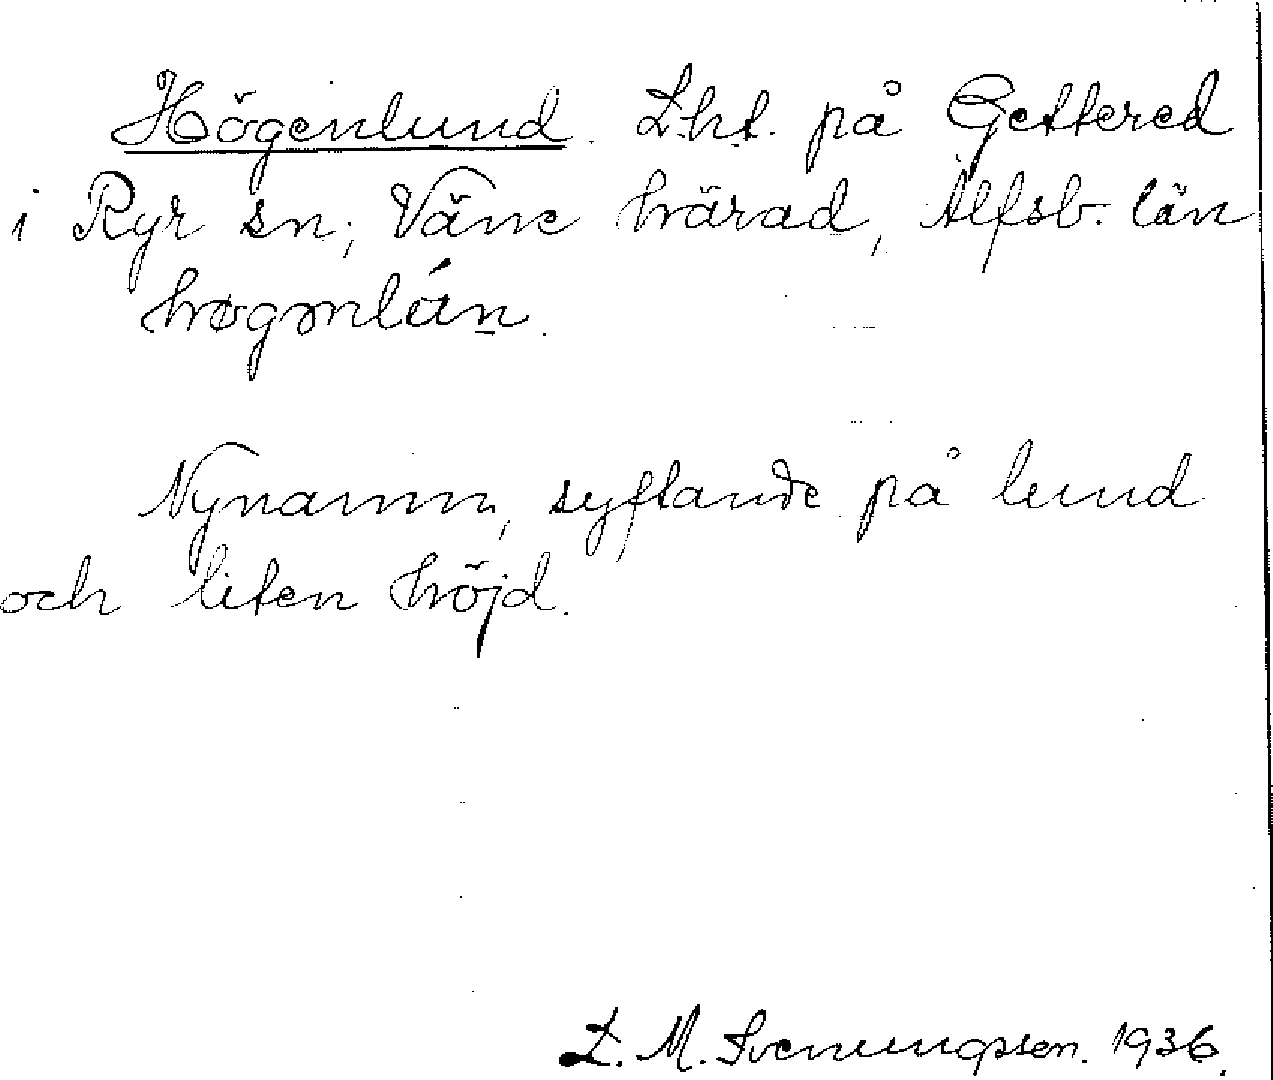 Högenlund. Lht. på Gettered
i Ryr sn; Väne härad, Älfsb. län
høgənlán.
Nynamn, syftande på lund
och liten höjd.
L. M. Svenungsson. 1936.